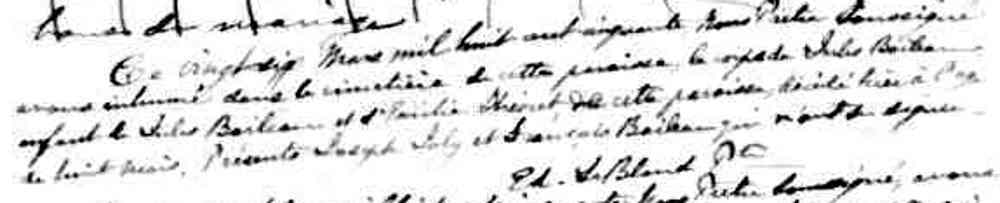 de mariage
Ce vingt six Mars mil huit cent cinquante Nous Prêtre Soussigné
avons inhumé dans le cimetière de cette paroisse le corps de Jules Boileau
enfant de Jules Boileau et d'Emilie Théoret de cette paroisse, décédé hier à l'age
de huit mois. Présents Joseph Joly et François Boileau qui n'ont su signer
Ed. LeBlond Ptre
Nous Prêtre Soussigné, avons